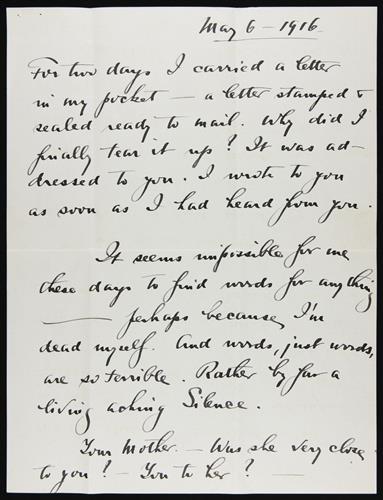 May 6 - 1916.
For two days I carried a letter
in my pocket — a letter stamped &
sealed ready to mail. Why did I
finally tear it up? It was ad-
dressed to you. I wrote to you
as soon as I had heard from you.
It seems impossible for me
these days to find words for anything
—— perhaps because I'm
dead myself. And words, just words,
are so terrible. Rather by far a
living aching Silence.
Your Mother. — Was she very close
to you? — You to her? —